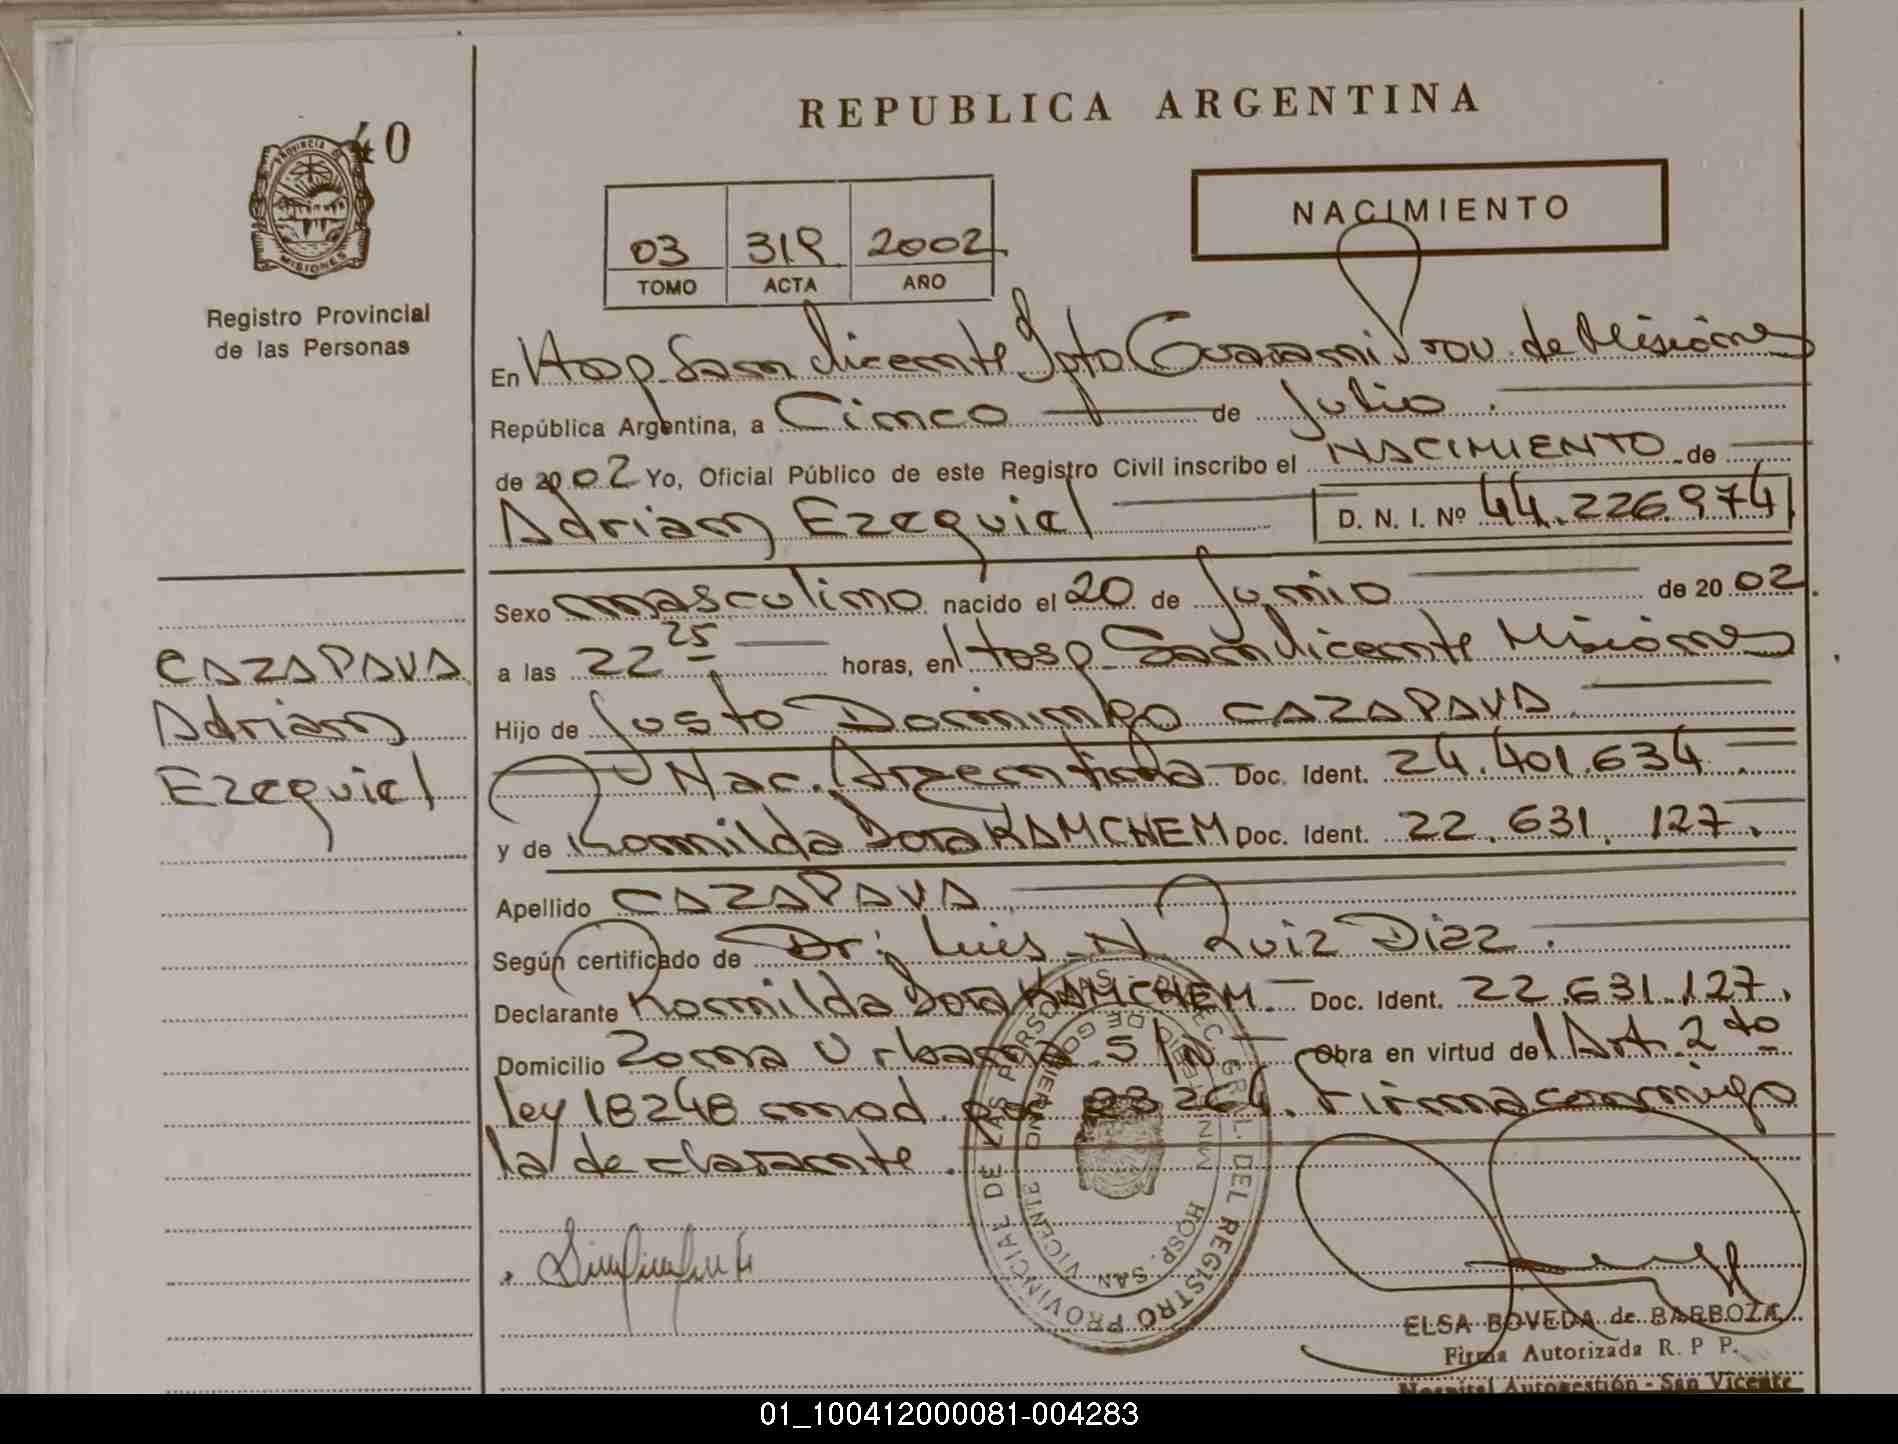 REPUBLICA ARGENTINA
40
PROVINCIA DE
MISIONES
Registro Provincial
de las Personas
03 319 2002
TOMO ACTA AÑO
NACIMIENTO
En Hosp. San Vicente Dpto Guarani Prov. de Misiones
República Argentina, a Cinco de Julio
de 2002 Yo, Oficial Público de este Registro Civil inscribo el NACIMIENTO de
Adrian Ezequiel D. N. I. Nº 44.226.974
Sexo masculino nacido el 20 de Junio de 2002
a las 22 25 horas, en Hosp. San Vicente Misiones
CAZAPAVA
Adrian
Ezequiel
Hijo de Justo Domingo CAZAPAVA
Nac. Argentina Doc. Ident. 24.401.634
y de Romilda Dora KAMCHEM Doc. Ident. 22.631.127.
Apellido CAZAPAVA
Según certificado de Dr: Luis N Ruiz Diaz.
Declarante Romilda Dora KAMCHEM. Doc. Ident. 22.631.127.
Domicilio Zona Urbana S/N Obra en virtud del Art. 2do
ley 18248 mod. por 23264. Firma conmigo
la declarante.
REGISTRO PROVINCIAL DE LAS PERSONAS
HOSP. SAN VICENTE
ELSA BOVEDA de BARBOZA
Firma Autorizada R. P P.
Hospital Autogestión - San Vicente
01_100412000081-004283